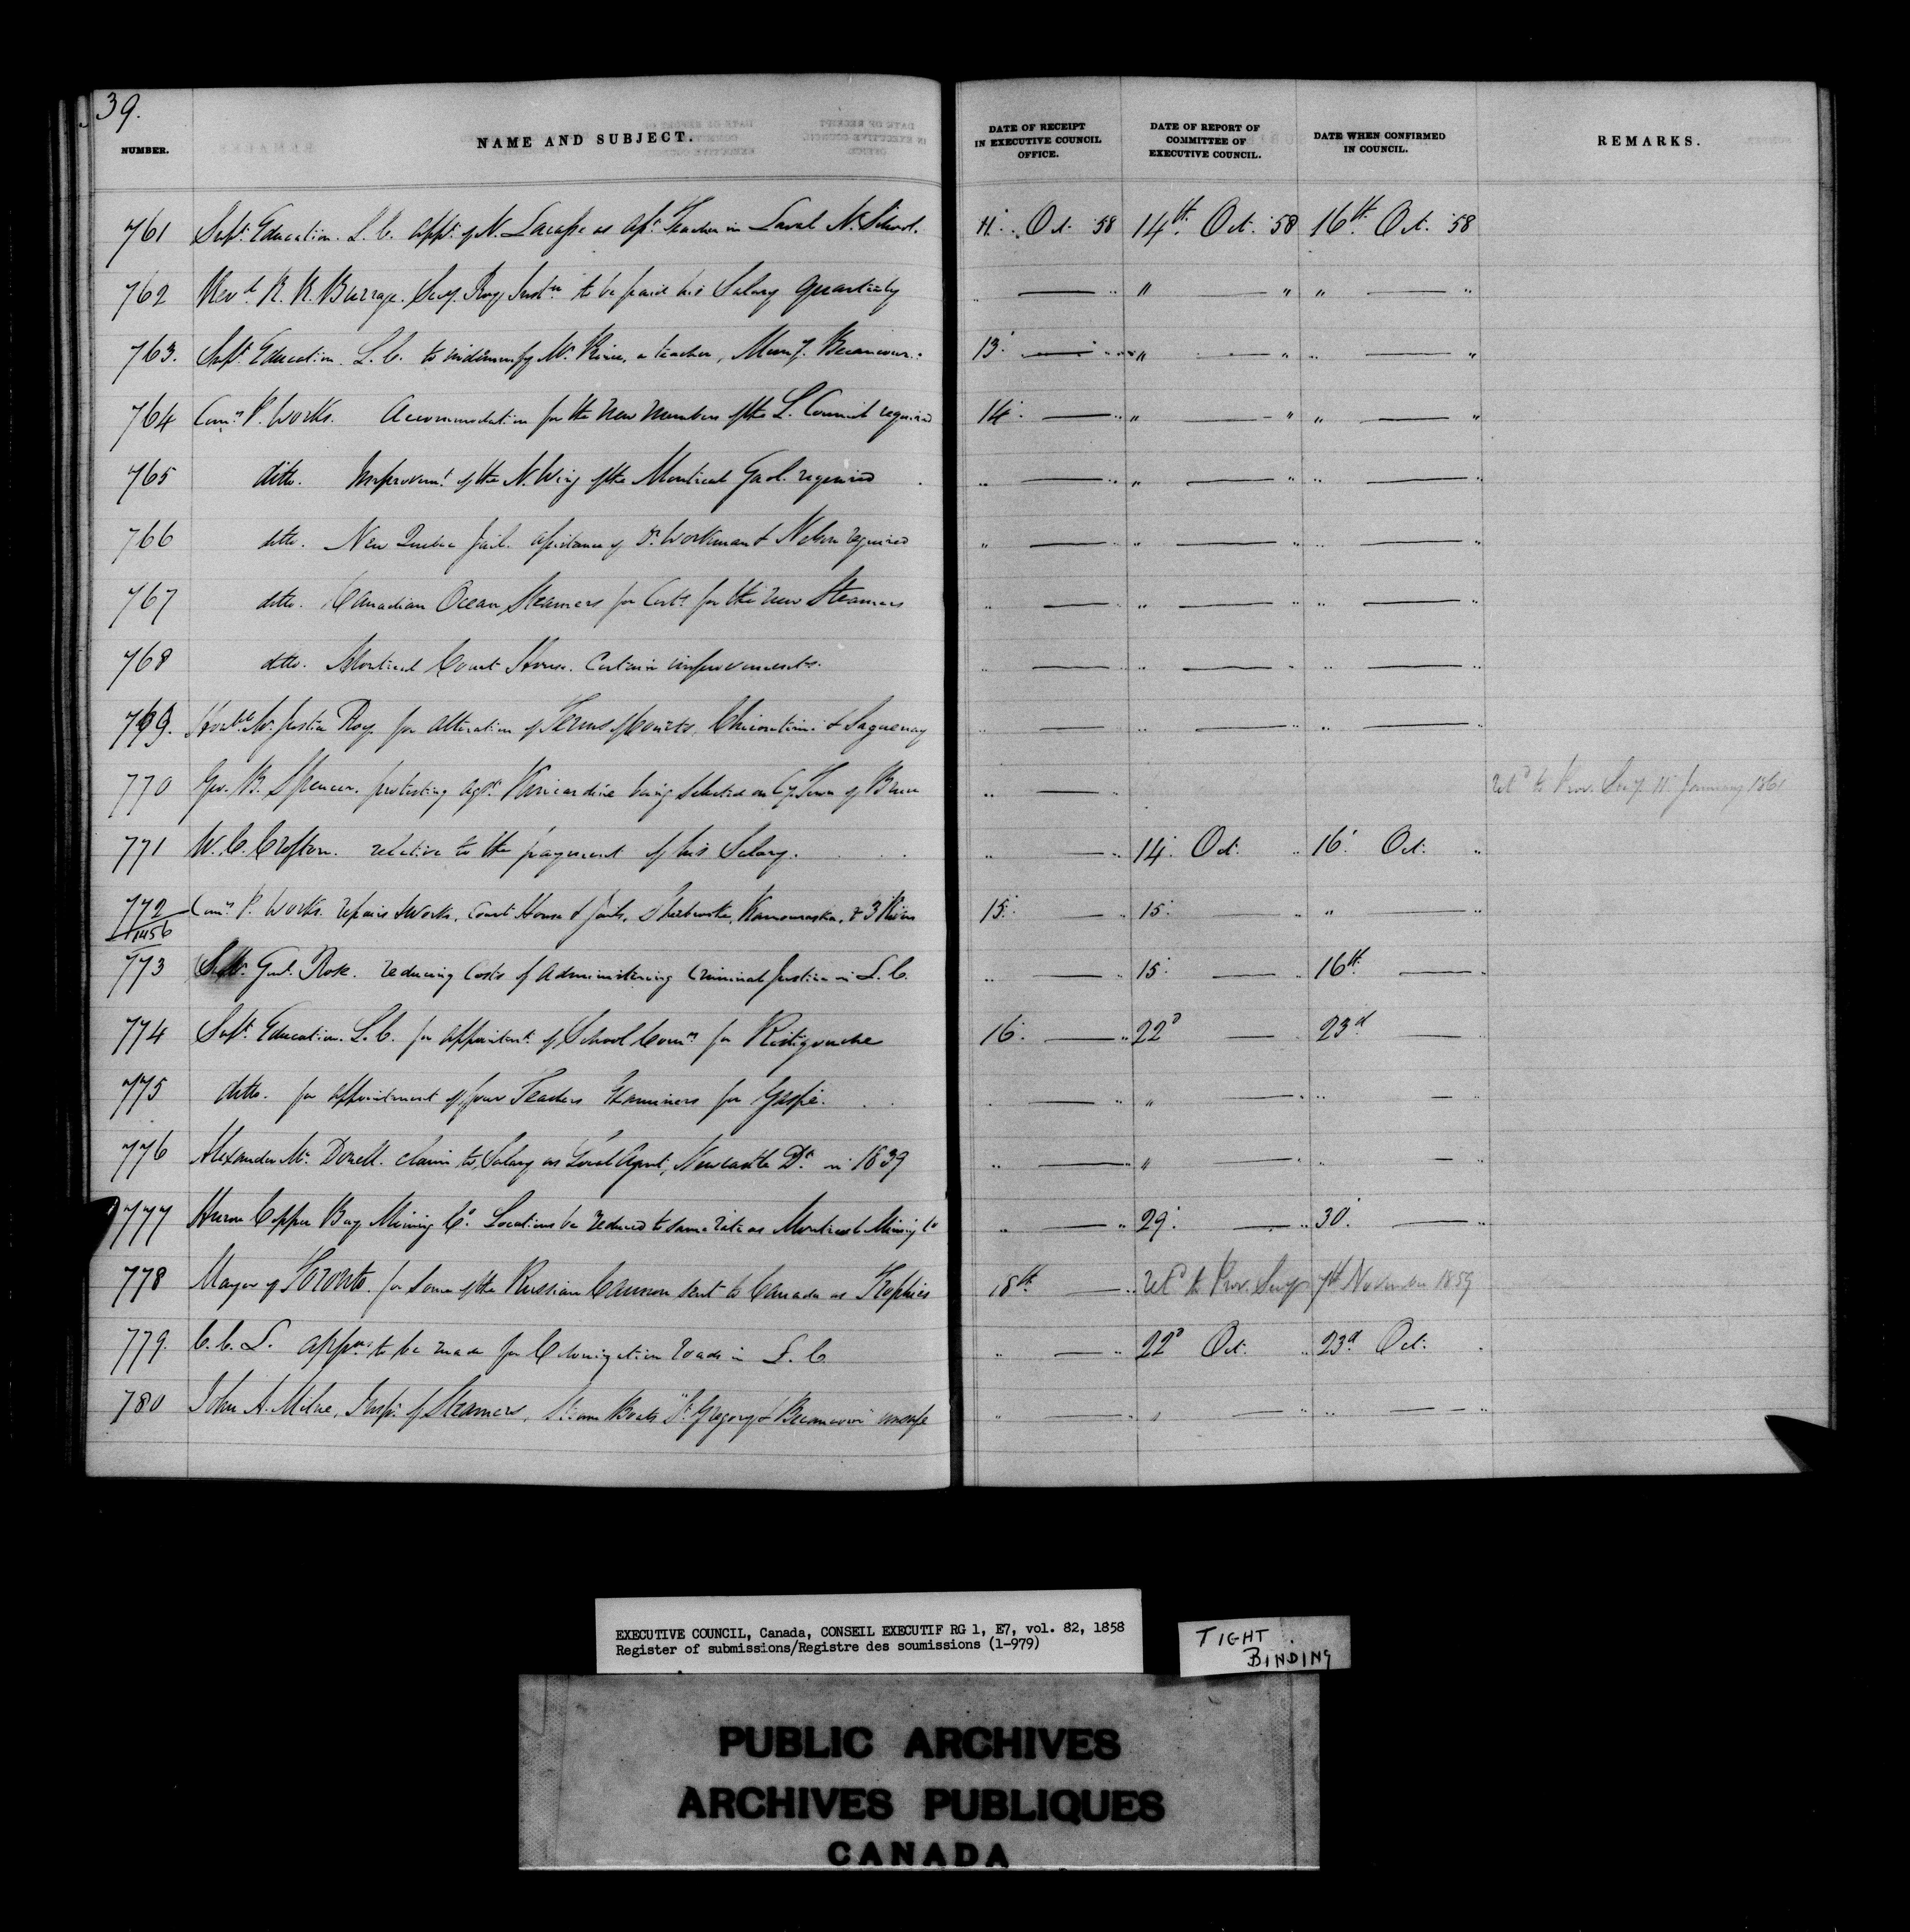 39.
NUMBER. NAME AND SUBJECT. DATE OF RECEIPT IN EXECUTIVE COUNCIL OFFICE. DATE OF REPORT OF COMMITTEE OF EXECUTIVE COUNCIL. DATE WHEN CONFIRMED IN COUNCIL. REMARKS.
761 Supt. Education. L. C. appt. of N. Lacasse as asst. Teacher in Laval N. School. 11. Oct. 58 14th. Oct. 58 16th. Oct. 58
762 Revd. R. R. Burrage. Secy. Roy. Instn. to be paid his Salary quarterly " — " " — " " — "
763. Supt. Education. L. C. to indemnify Mr. , a teacher, Becancour. 13. — " " — " " — "
764 Comrs. P. Works. Accommodation for the new members of the L. Council required 14. — " " — " " — "
765 ditto. Improvemt. of the N. Wing of the Montreal Gaol. required " — " " — " " — "
766 ditto. New Quebec Jail. assistance of Drs. Workman & Nelson required " — " " — " " — "
767 ditto. Canadian Ocean Steamers for Certs. for the new Steamers " — " " — " " — "
768 ditto. Montreal Court House. Certain improvements. " — " " — " " — "
769. Honble. Mr. Justice Roy. for alteration of Terms of Courts, Chicoutimi & Saguenay " — " " — " " — "
770 Geo. B. Spencer. protesting agst. Kincardine being selected as Cy. Town of Bruce " — " Retd. to Prov. Secy. January 1861
771 W. C. Crofton. relative to the payment of his Salary. " — " 14. Oct. " 16. Oct. "
772 1456 Comrs. P. Works. repairs & Works, Court House & Jails, Sherbrooke, Kamouraska, & 3 Rivers 15. — " 15. " — "
773 Genl. Rose. reducing Costs of Administering Criminal Justice in L. C. " — " 15. — " 16th. — "
774 Supt. Education. L. C. for appointmt. of School Comrs. for Ristigouche 16. — " 22d — " 23d — "
775 ditto. for appointment of four Teachers Examiners for Gaspé. " — " " — " " — "
776 Alexander Mc. Donell. claim to Salary as Local Agent, Newcastle Dt. in 1839 " — " " — " " — "
777 Huron Copper Bay Mining Co. Locations be reduced to same rate as Montreal Mining Co " — " 29. — " 30. — "
778 Mayor of Toronto. for some of the Russian Cannon sent to Canada as Trophies 18th. — " Retd. to Prov. Secy 7th November 1859
779. C. C. L. appns. to be made for Colonization roads in L. C " — " 22d Oct. " 23d Oct. "
780 John A. Milne, Inspr. of Steamers, Steam Boats "St. Gregory & Becancour" unsafe " — " " — " " — "
EXECUTIVE COUNCIL, Canada, CONSEIL EXECUTIF RG 1, E7, vol. 82, 1858
Register of submissions/Registre des soumissions (1-979)
TIGHT
BINDING
PUBLIC ARCHIVES
ARCHIVES PUBLIQUES
CANADA